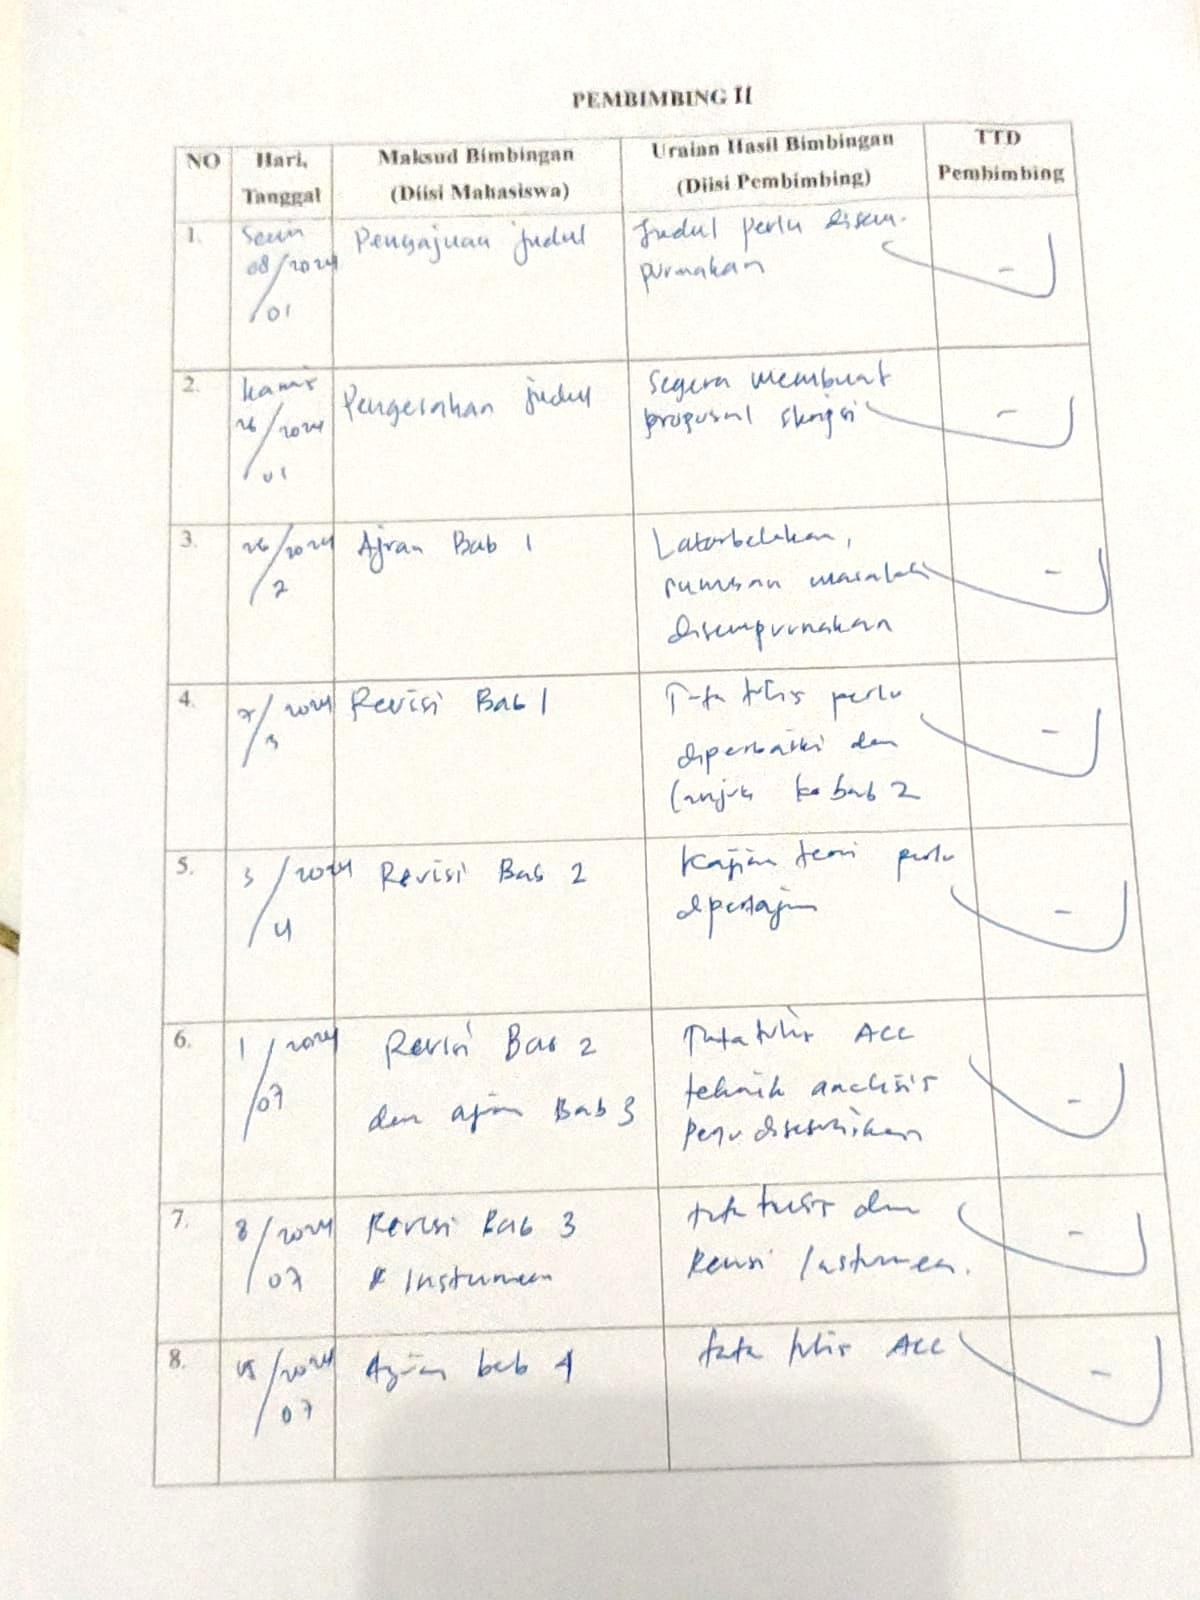 PEMBIMBING II
NO Hari, Tanggal Maksud Bimbingan (Diisi Mahasiswa) Uraian Hasil Bimbingan (Diisi Pembimbing) TTD Pembimbing
1. Senin 08/2024/01 Pengajuan judul Judul perlu disem-
purnakan
2. Kamis /2024/01 Pengesahan judul Segera membuat
proposal skripsi
3. 26/2024/2 Ajuan Bab 1 Latarbelakan,
rumusan masalah
disempurnakan
4. /2024/3 Revisi Bab 1 Tata tulis perlu
diperbaiki dan
lanjut ke bab 2
5. 3/2024/4 Revisi Bab 2 Kajian teori perlu
dipertajam
6. 1/2024/07 Revisi Bab 2 Tata tulis ACC
dan ajuan Bab 3 teknik analisis
disesuaikan
7. 8/2024/07 Revisi Bab 3 tata tulis dan
& Instumen Revisi Instumen.
8. 15/2024/07 Ajuan bab 4 tata tulis ACC